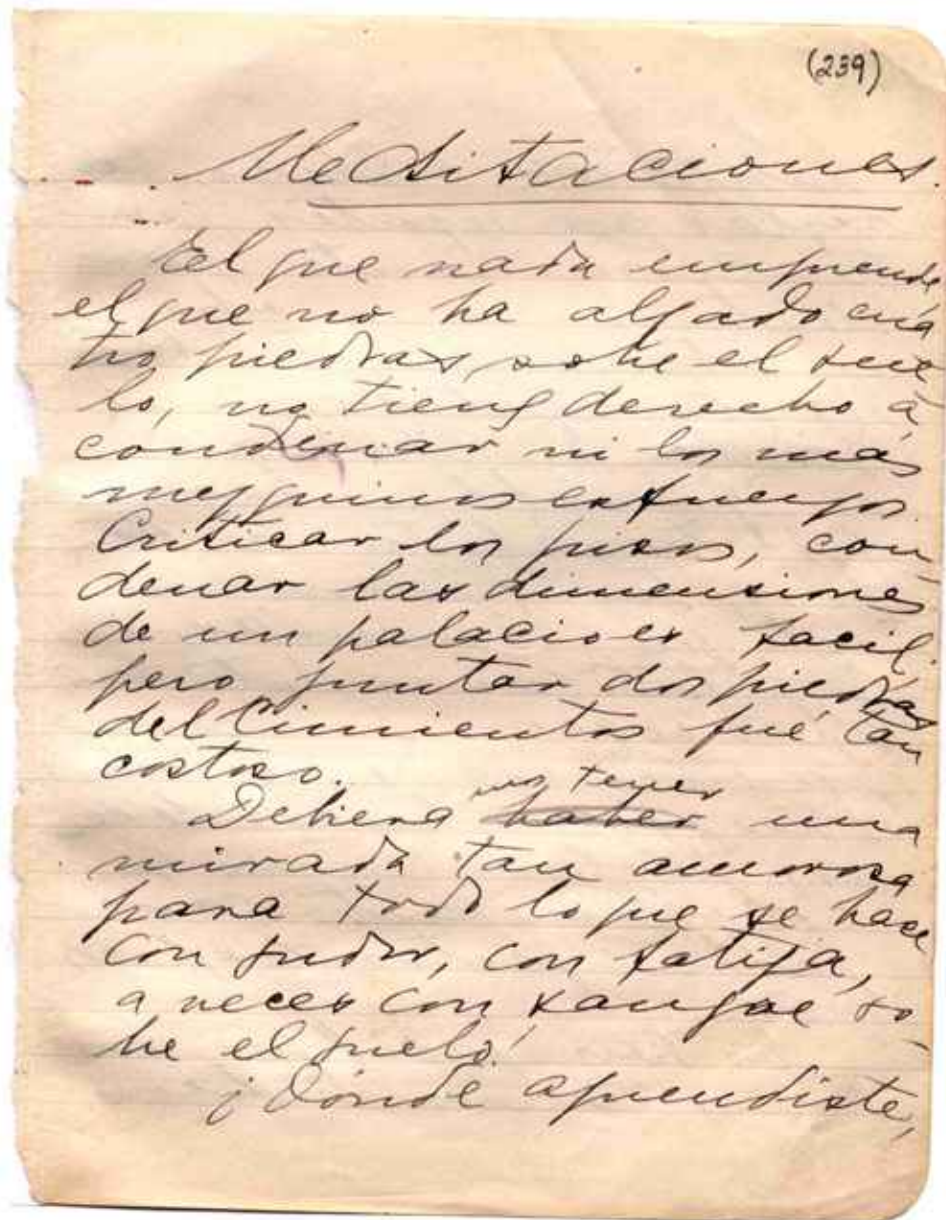 (239)
Meditaciones
El que nada emprende,
el que no ha alzado cua
tro piedras, sobre el sue
lo, no tiene derecho á
condenar ni los más
mezquinos esfuerzos.
Criticar los pisos, con-
denar las dimensiones
de un palacio es facil.
pero juntar dos piedras
del Cimientos fué tan
costoso.
nos tener
Debiera haber una
mirada tan amorosa
para todo lo que se hace
con sudor, con fatiga,
a veces con sangre so-
bre el suelo!
¿Dónde aprendiste,